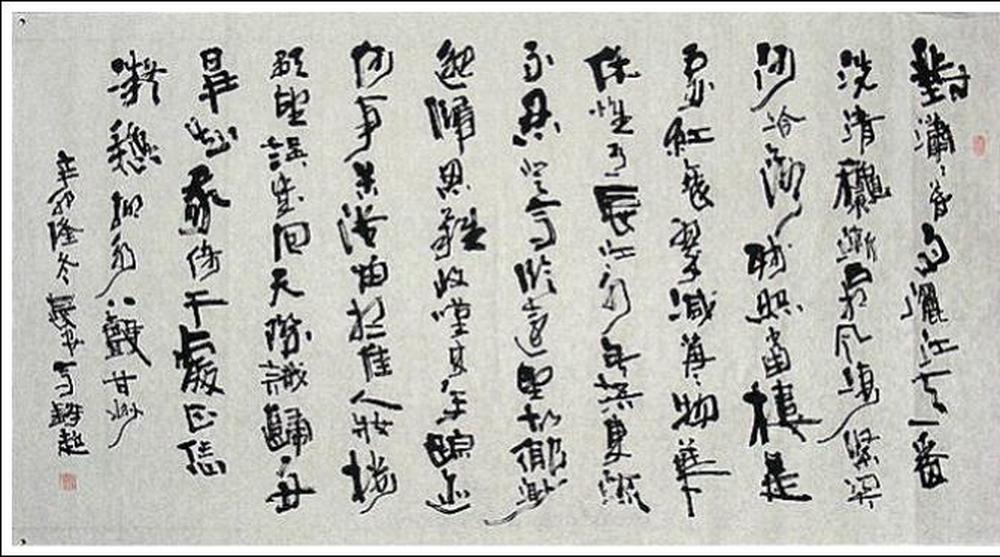 對瀟々暮雨灑江天一番
洗清穐漸霜風凄緊関
河冷落殘照當樓是
處紅衰翠減苒々物華
休惟有長江水無語東流
不忍登高臨遠望故鄉渺
邈歸思難收嘆年來蹤迹
何事苦淹留想佳人妝樓
顒望誤幾回天際識歸舟
爭知我倚干處正恁
凝愁柳永八聲甘州
辛卯隆冬